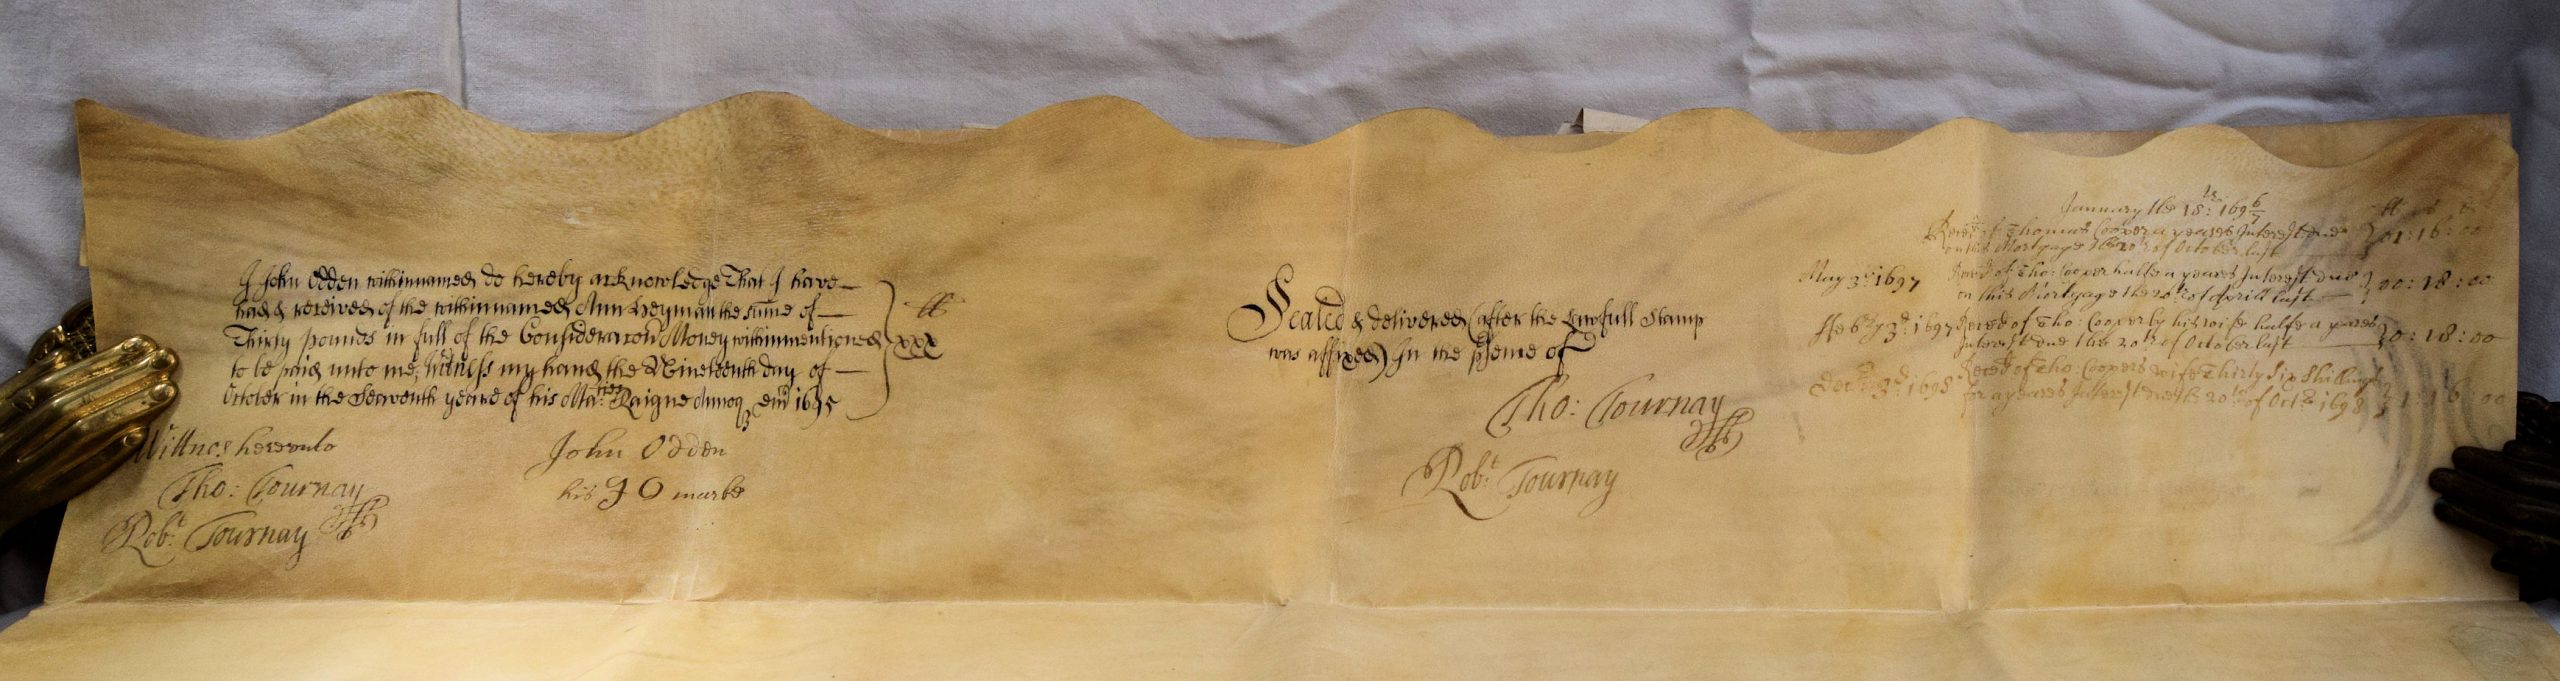 I John Odden withinnamed do hereby acknowledge That I have
had & received of the withinnamed Ann Heyman the sume of
Thirty pounds in full of the Consideracon Money withinmentioned
to be paid unto me, Witness my hand the Nineteenth day of
October in the Seaventh yeare of his Ma:ties Raigne Annoq Dni 1695
li
xxx
Wittnes hereunto
Tho: Tournay
Robt: Tournay
John Odden
his J O marke
Sealed & delivered (after the Lawfull Stamp
was affixed) In the p'sence of
Tho: Tournay
Robt: Tournay
January the 18: 1696/7
Recd of Thomas Cooper a yeares Interest due
on this Mortgage the 20th of October last 01:16:00
May 3d 1697 Recd of Tho: Cooper halfe a yeares Interest due
on this Mortgage the 20th of Aprill last 00:18:00
Feb:ry 3d: 1697 Recd of Tho: Cooper by his wife halfe a yeares
Interest due the 20th of October last 0:18:00
Decr 3d 1698 Recd of Tho: Coopers wife Thirty Six Shillings
for a yeares Interest due the 20th of Octr 1698 1:16:00